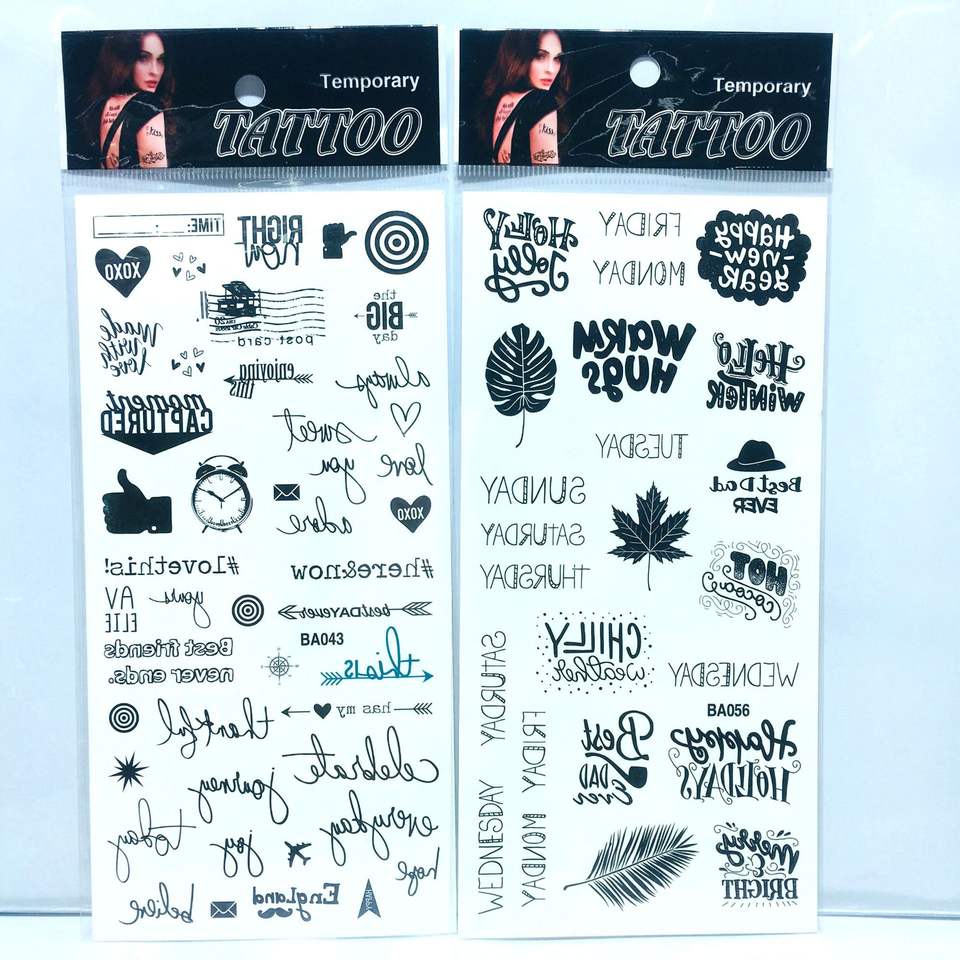 Temporary
TATTOO
TIME:
RIGHT
now
XOXO
the
BIG
day
made
with
love
post card
enjoying
this
always
moment
CAPTURED
sweet
love
you
adore
XOXO
#lovethis!
#here&now
AV
ELIE
yours
bestDAYever
Best friends
never ends.
BA043
this is
thankful
has my
celebrate
journey
everyday
today
joy
hope
believe
England
HAPPY
Temporary
TATTOO
HOLLY
Jolly
FRIDAY
MONDAY
HAPPY
-new-
year
WARM
HUGS
Hello
WINTER
TUESDAY
SUNDAY
SATURDAY
THURSDAY
Best Dad
EVER
HOT
cocoa
CHILLY
weather
WEDNESDAY
SATURDAY
WEDNESDAY
FRIDAY
MONDAY
BA056
Best
DAD
Ever
Happy
HOLIDAYS
merry
&
BRIGHT